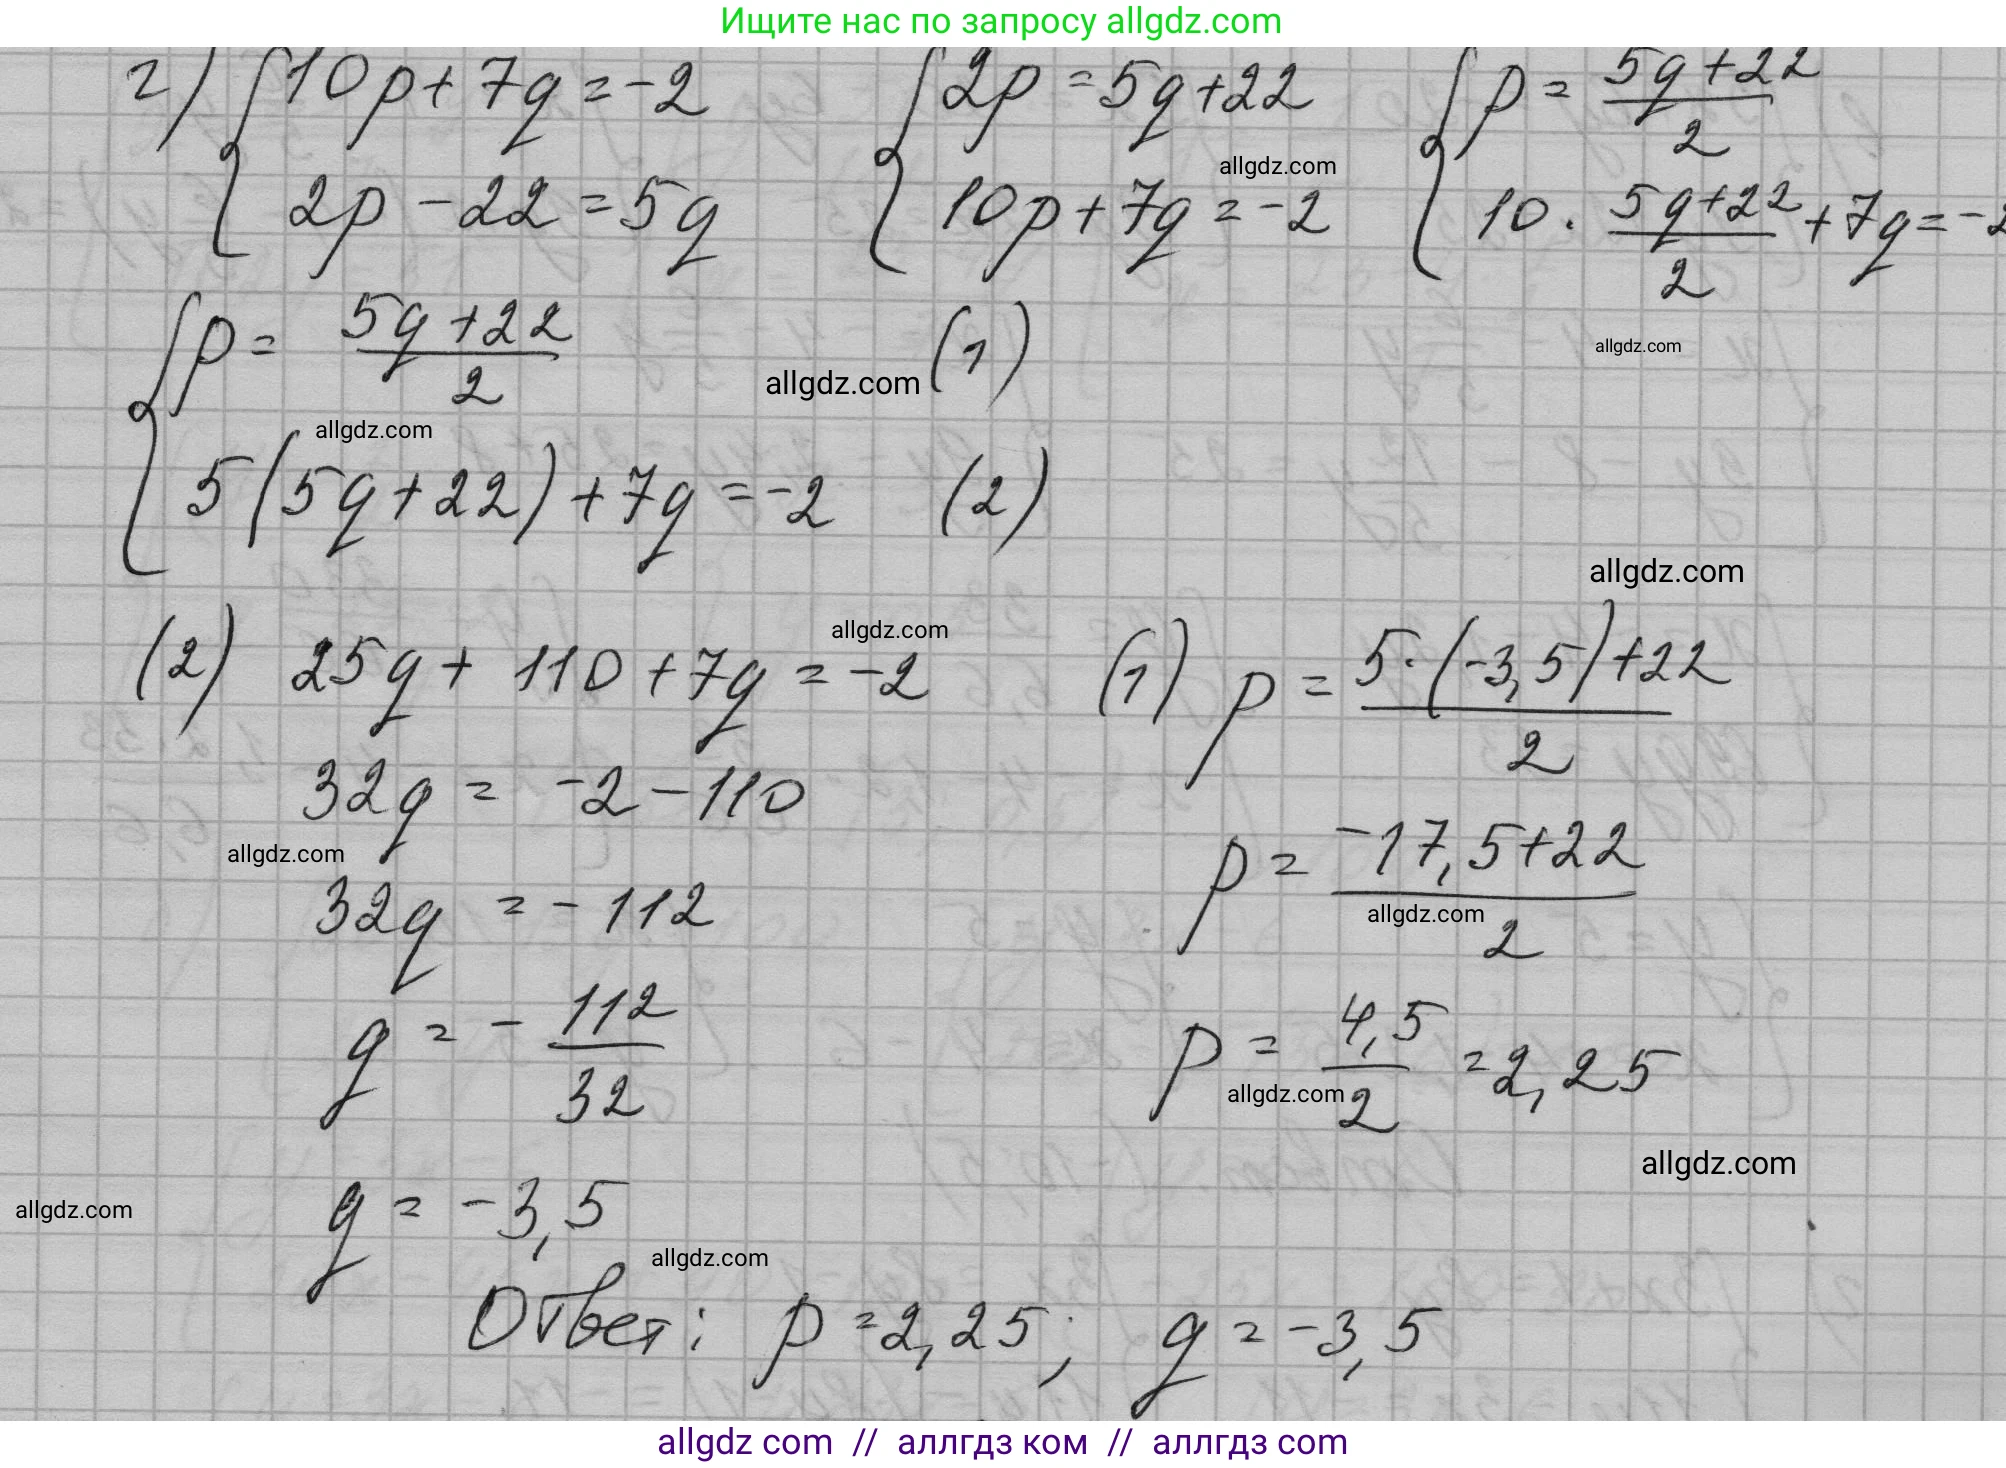 Ищите нас по запросу allgdz.com
г) { 10p + 7q = -2   { 2p = 5q + 22   { p = (5q + 22)/2
{ 2p - 22 = 5q   { 10p + 7q = -2   { 10 · (5q + 22)/2 + 7q = -2
allgdz.com
{ p = (5q + 22)/2   (1)
allgdz.com
allgdz.com
allgdz.com
{ 5(5q + 22) + 7q = -2   (2)
allgdz.com
allgdz.com
(2) 25q + 110 + 7q = -2   (1) p = (5 · (-3,5) + 22)/2
32q = -2 - 110
p = (-17,5 + 22)/2
allgdz.com
32q = -112
allgdz.com
q = -112/32   p = 4,5/2 = 2,25
allgdz.com
allgdz.com
q = -3,5
allgdz.com
allgdz.com
Ответ: p = 2,25; q = -3,5
allgdz com // аллгдз ком // аллгдз com